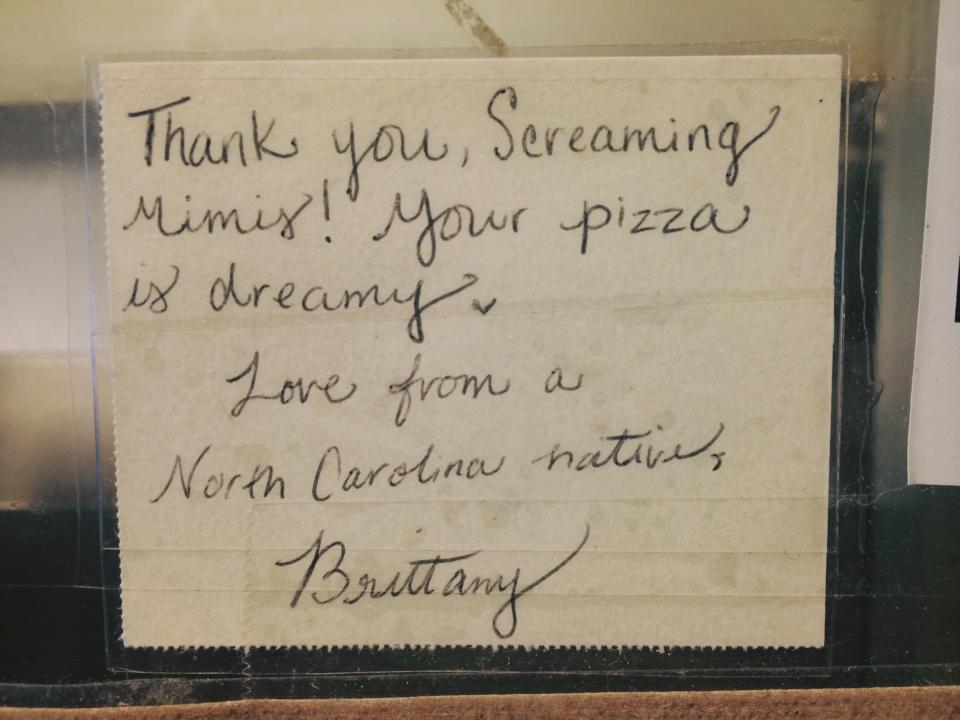 Thank you, Screaming
Mimis! Your pizza
is dreamy.
Love from a
North Carolina native,
Brittany